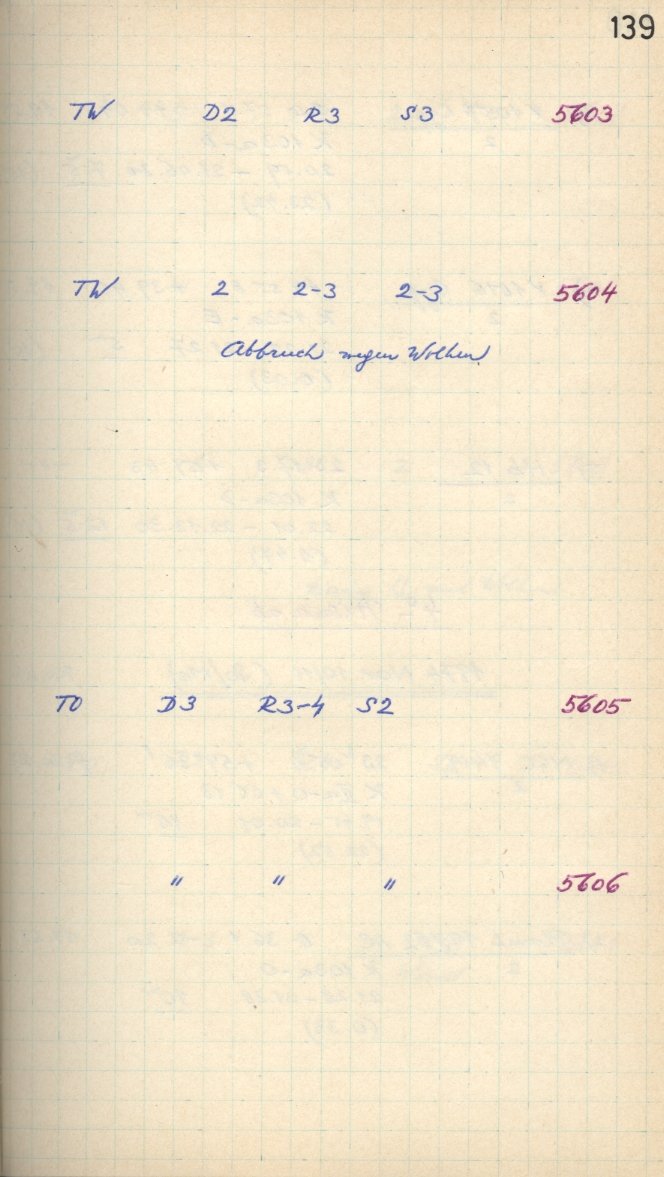 139
TW D2 R3 S3 5603
TW 2 2-3 2-3 5604
Abbruch wegen Wolken
TO D3 R3-4 S2 5605
" " " 5606